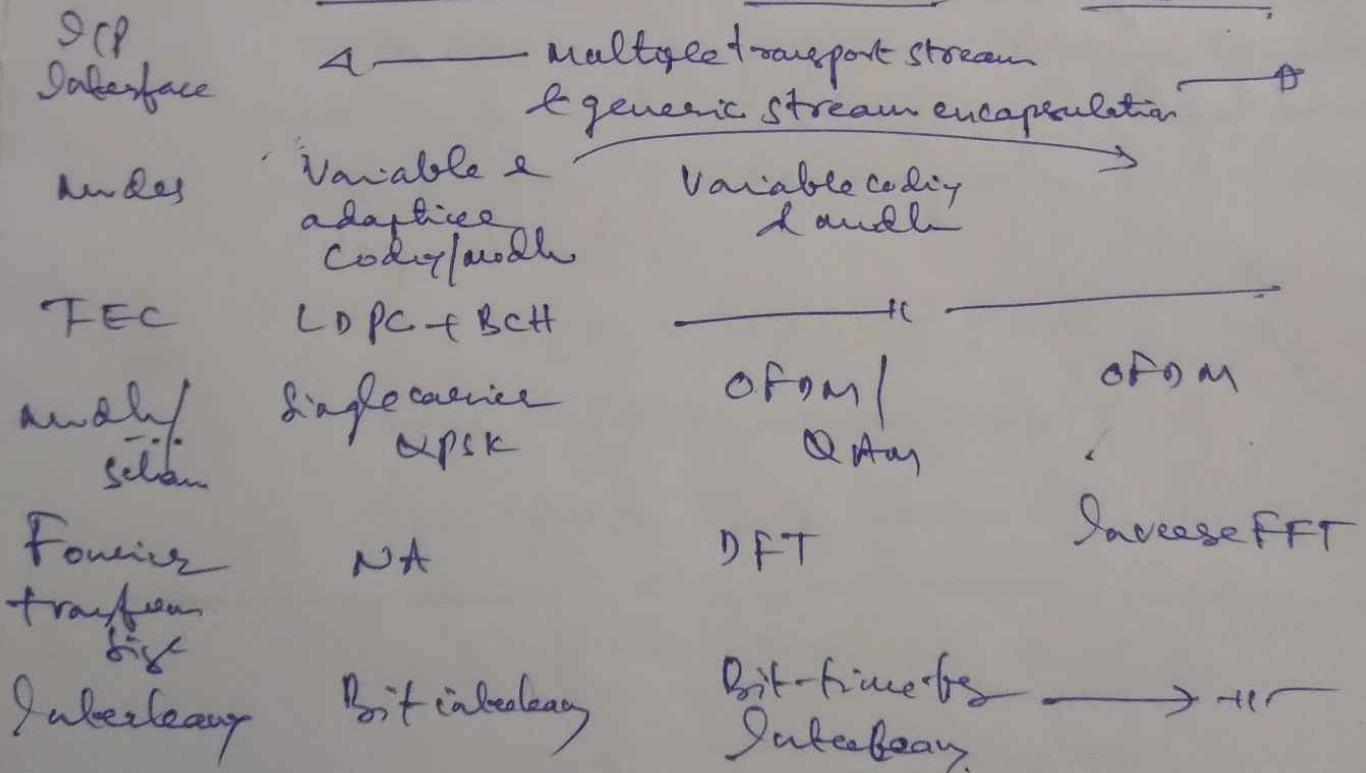 Interface
Multiple transport stream
& generic stream encapsulation
Variable &
adaptive
Coding/modln
Variable coding
& modln
FEC LDPC + BCH
Single carrier
QPSK
OFDM/
QAM
OFDM
Fourier
transform
size
NA DFT Inverse FFT
Interleaving Bit interleaving
Bit-time-
Interleaving